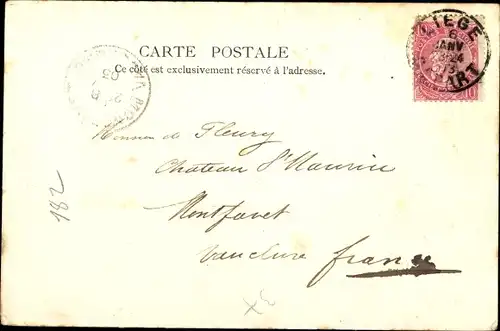 CARTE POSTALE
Ce côté est exclusivement réservé à l'adresse.
LIEGE
6
JANV
DÉPART
10
03
Monsieur de Fleury
Château St Maurice
Montfavet
Vaucluse France
182